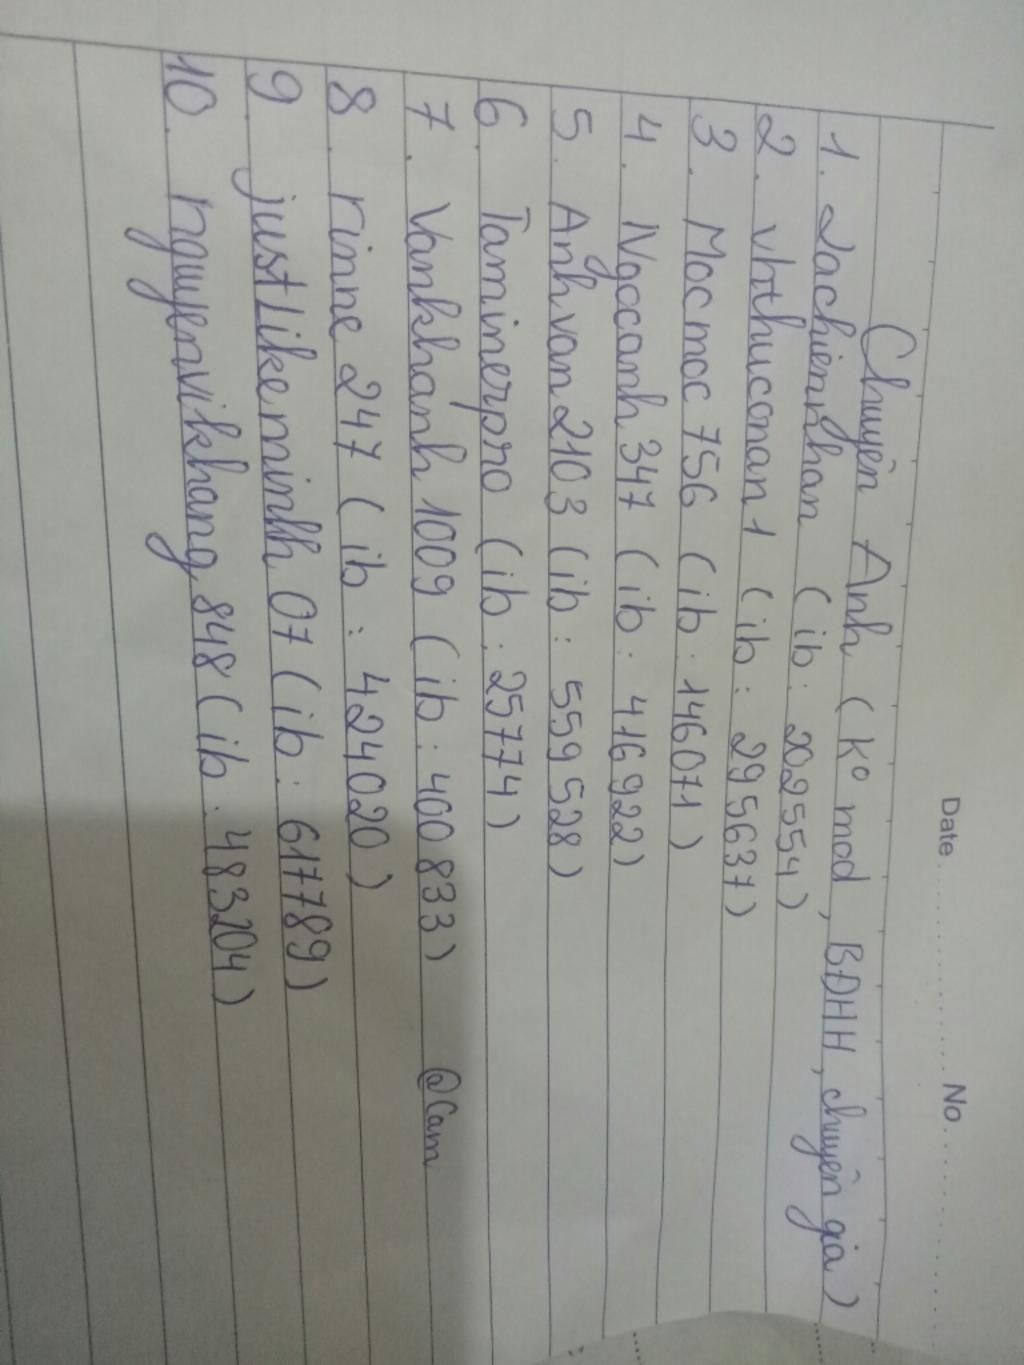 Date No
Chuyên Anh (K° mod, BĐHH, chuyên gia)
1. Lachiennhan (ib: 202554)
2. vhthuconan1 (ib: 295637)
3. Mocmoc756 (ib: 146071)
4. Ngocanh347 (ib: 416922)
5. Anhvan2103 (ib: 559528)
6. Taminerpro (ib: 25774)
7. Vankhanh1009 (ib: 400833) @Cam
8. rinne247 (ib: 424020)
9. justLikeminhh07 (ib: 61789)
10. nguyenvikhang848 (ib: 483204)